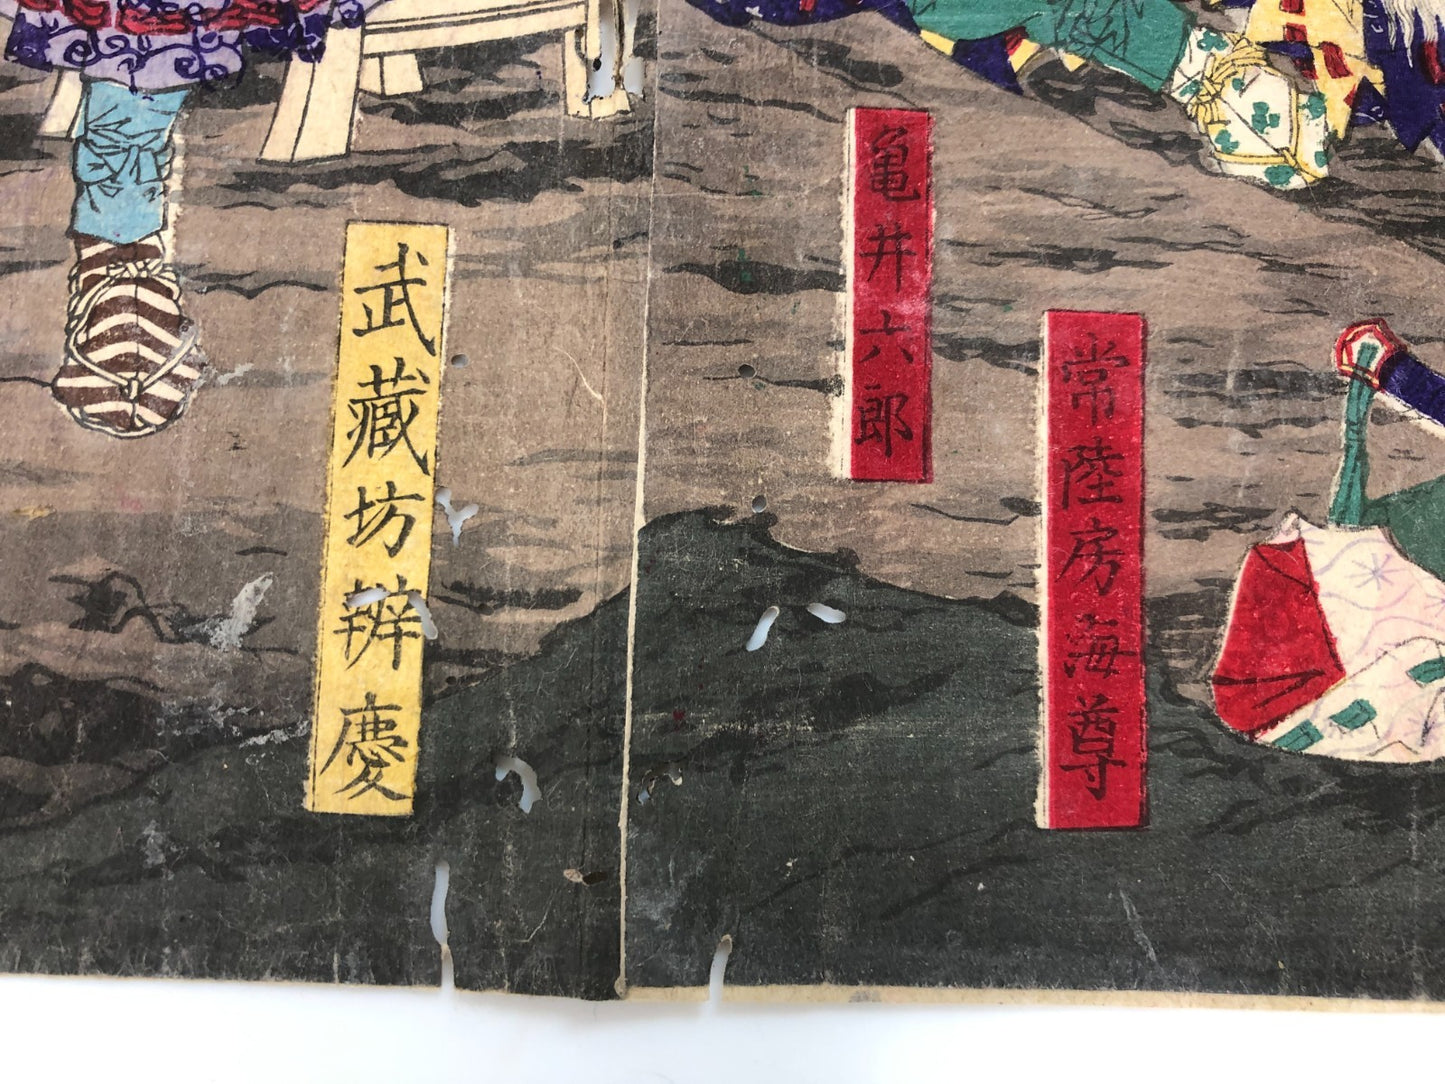 常陸房海尊
亀井六郎
武蔵坊辨慶